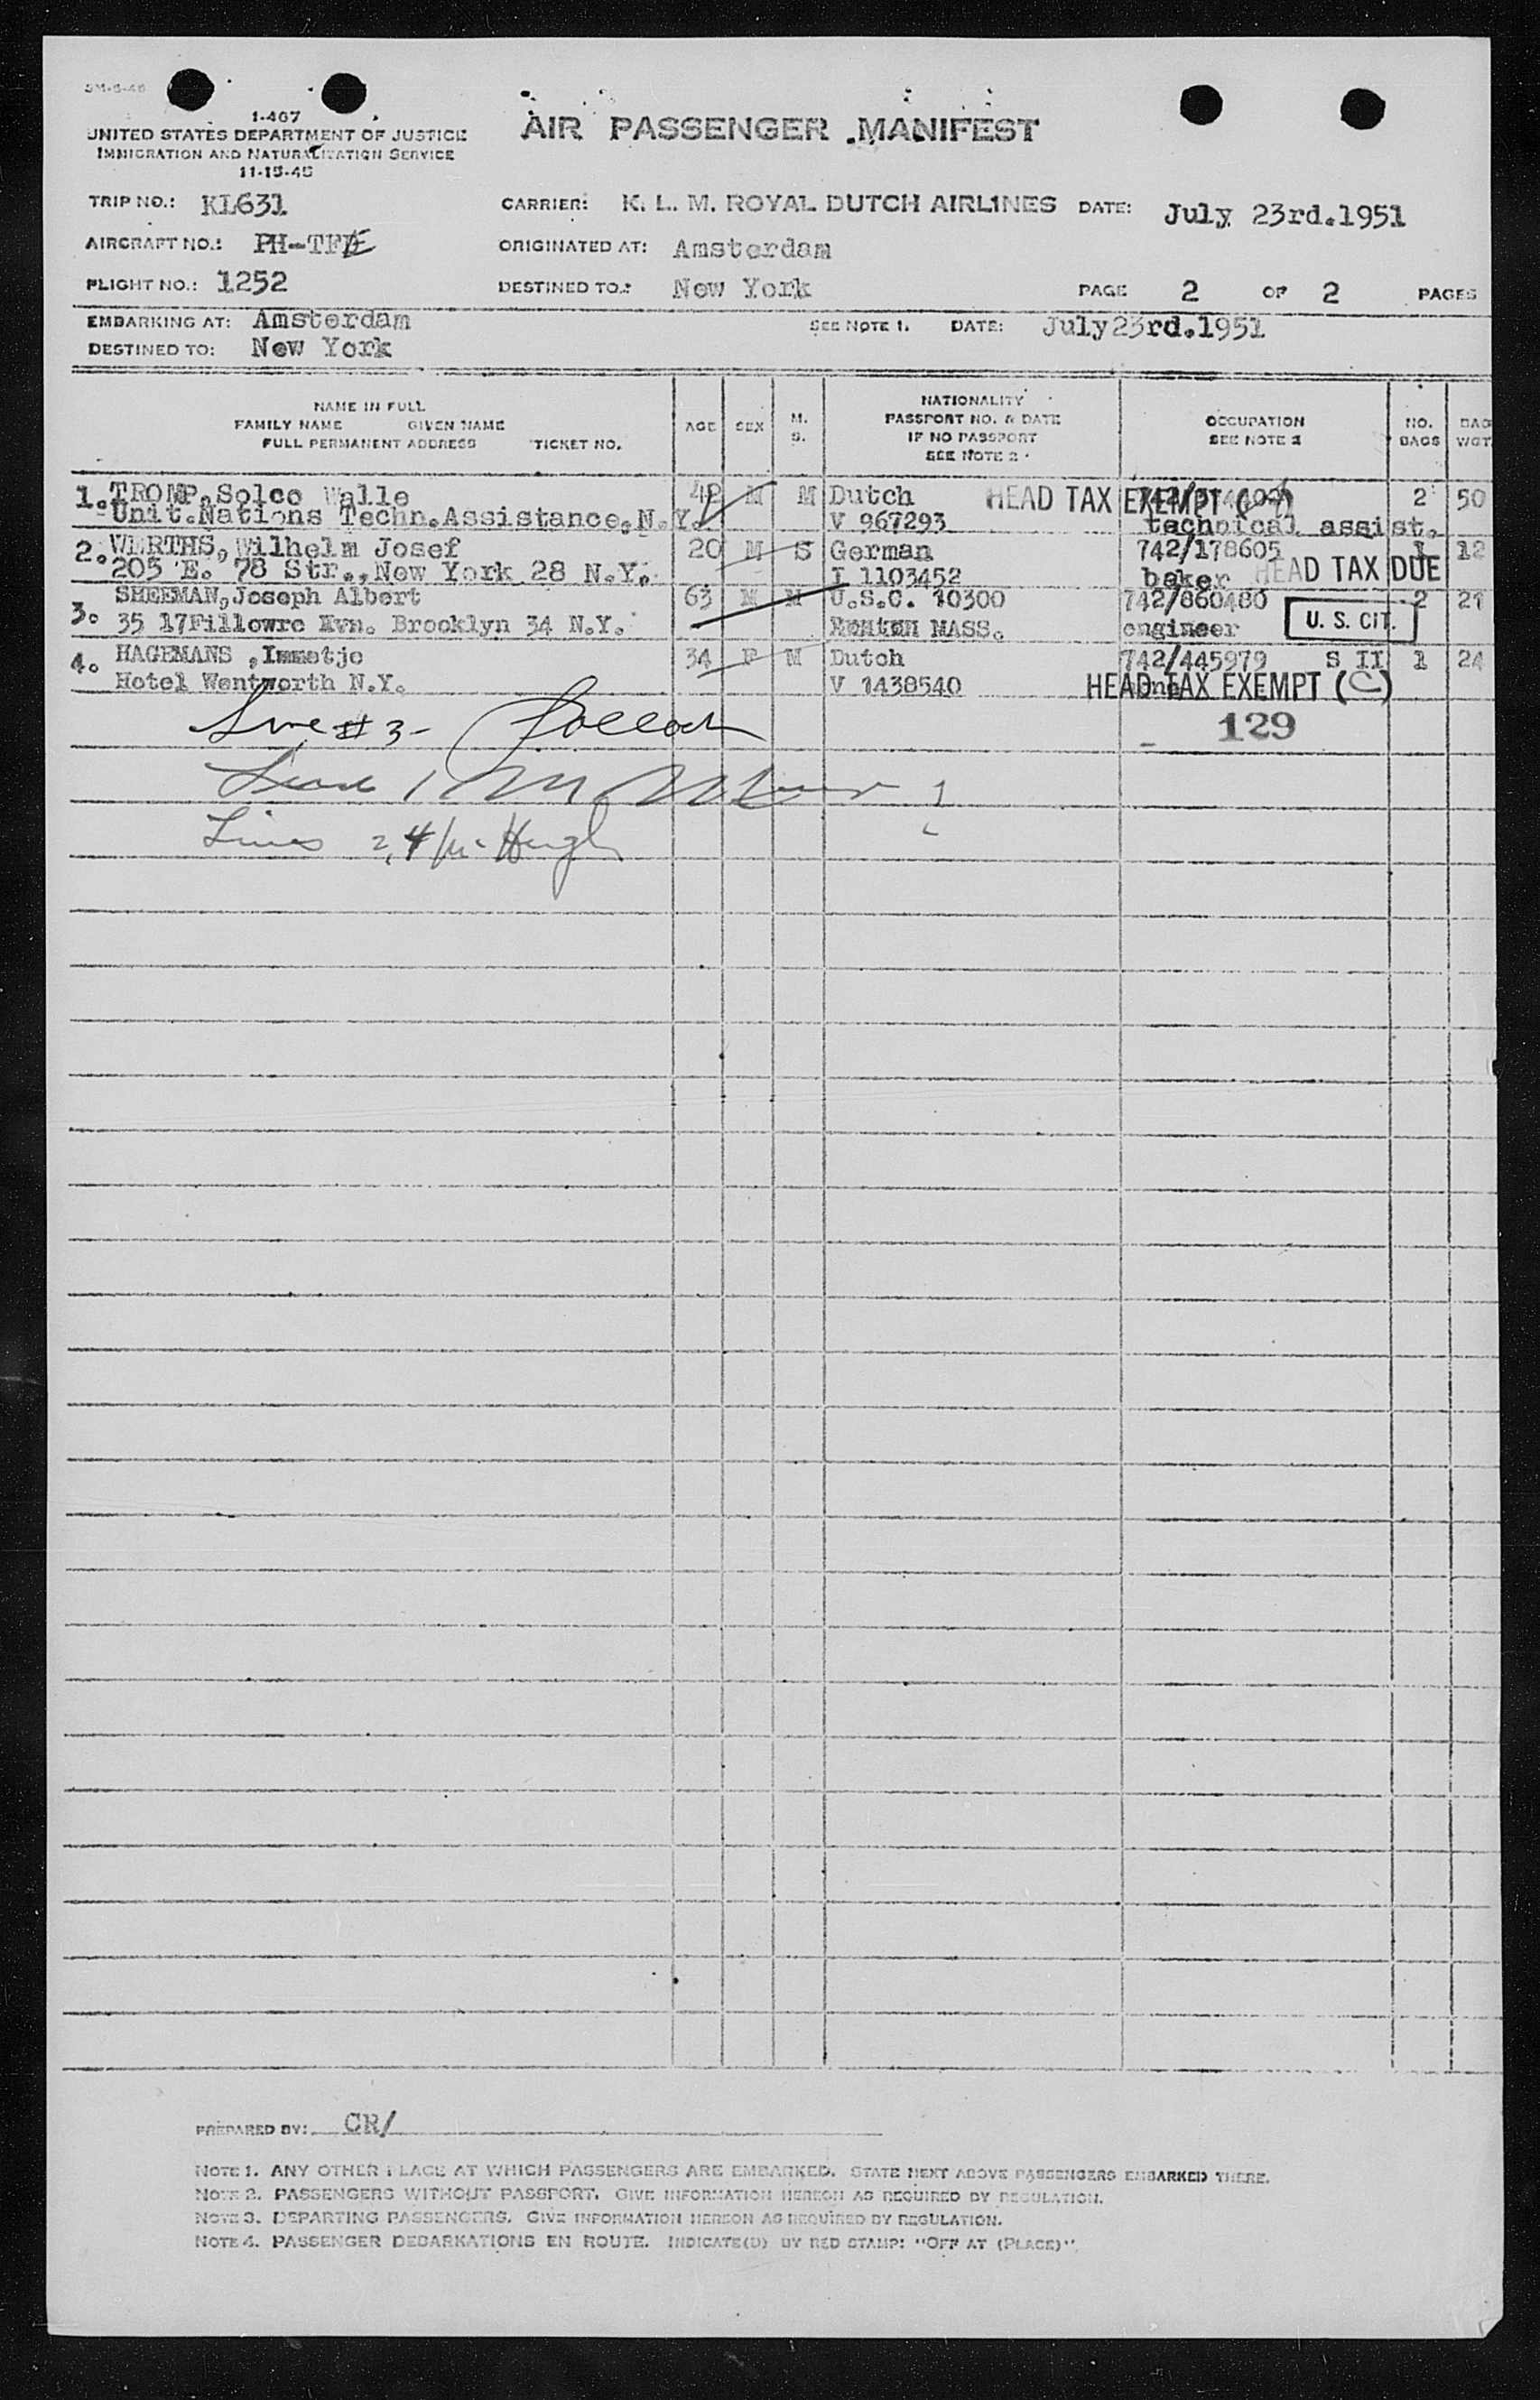 1-407
UNITED STATES DEPARTMENT OF JUSTICE
IMMIGRATION AND NATURALIZATION SERVICE
11-15-45
AIR PASSENGER MANIFEST
TRIP NO.: KL631 CARRIER: K. L. M. ROYAL DUTCH AIRLINES DATE: July 23rd.1951
AIRCRAFT NO.: PH-TFE ORIGINATED AT: Amsterdam
FLIGHT NO.: 1252 DESTINED TO: New York PAGE 2 OF 2 PAGES
EMBARKING AT: Amsterdam SEE NOTE 1. DATE: July23rd.1951
DESTINED TO: New York
NAME IN FULL
FAMILY NAME GIVEN NAME
FULL PERMANENT ADDRESS TICKET NO.
AGE SEX M. S.
NATIONALITY
PASSPORT NO. & DATE
IF NO PASSPORT
SEE NOTE 2
OCCUPATION
SEE NOTE 3
NO. BAGS
BAG WGT
1. TROMP, Solco Walle 42 M M Dutch HEAD TAX EXEMPT 2 50
Unit.Nations Techn.Assistance, N.Y. V 967293 technical assist.
2. WERTHS, Wilhelm Josef 20 M S German 742/178605 1 12
205 E. 78 Str., New York 28 N.Y. I 1103452 baker HEAD TAX DUE
3. SHEEMAN, Joseph Albert 63 M M U.S.C. 10300 742/860480 2 21
35 17Fillowre Avn. Brooklyn 34 N.Y. MASS. engineer U. S. CIT.
4. HAGEMANS, Immetje 34 F M Dutch 742/445979 S II 1 24
Hotel Wentworth N.Y. V 1438540 HEAD TAX EXEMPT (C)
Line #3- Pollock 129
Lines 2,4 McHugh
PREPARED BY: CR/
NOTE 1. ANY OTHER PLACE AT WHICH PASSENGERS ARE EMBARKED. STATE NEXT ABOVE PASSENGERS EMBARKED THERE.
NOTE 2. PASSENGERS WITHOUT PASSPORT. GIVE INFORMATION HEREON AS REQUIRED BY REGULATION.
NOTE 3. DEPARTING PASSENGERS. GIVE INFORMATION HEREON AS REQUIRED BY REGULATION.
NOTE 4. PASSENGER DEBARKATIONS EN ROUTE. INDICATE(D) BY RED STAMP: "OFF AT (PLACE)".